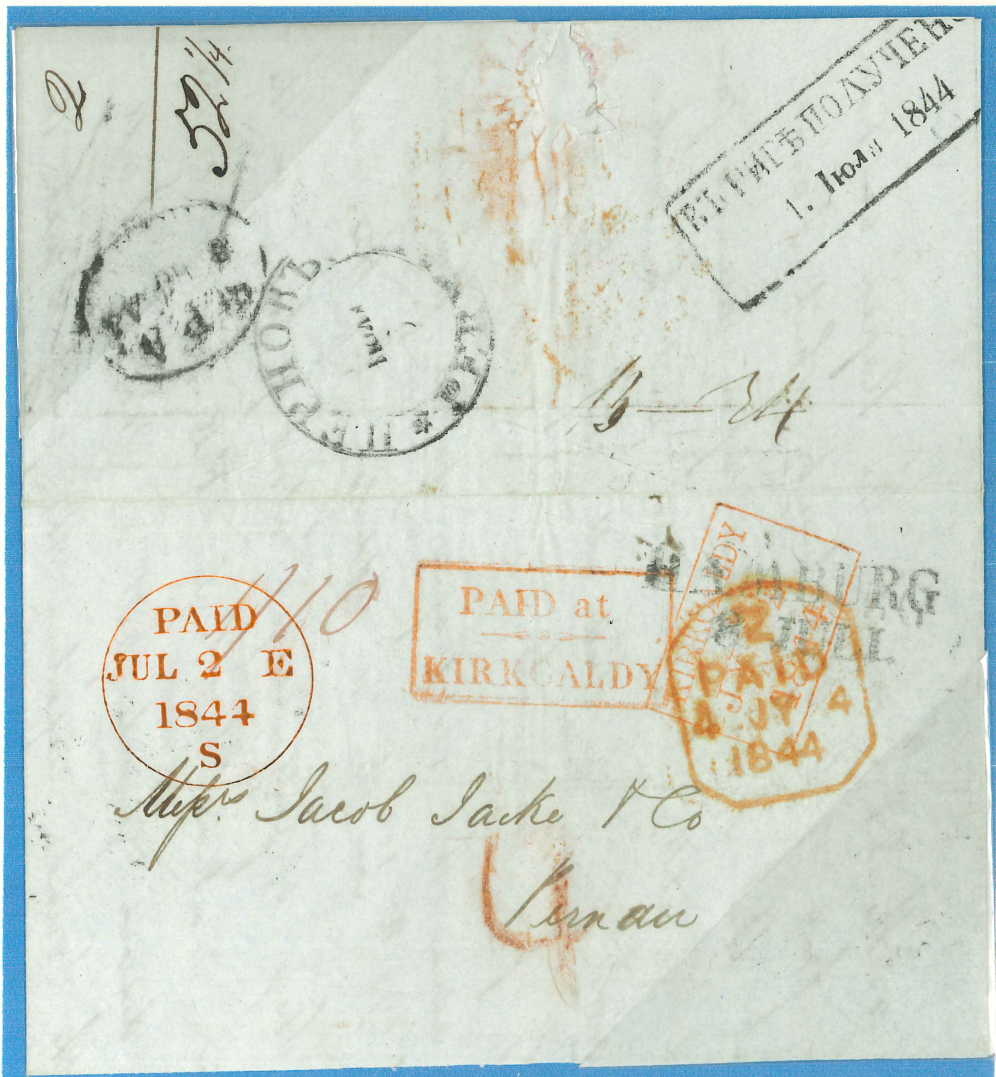 2
52 1/4
ВЪ РИГѢ ПОЛУЧЕНО
1. Іюля 1844
ПЕРНОВЪ
PAID
JUL 2 E
1844
S
1/10
PAID at
KIRKCALDY
KIRKCALDY
1844
HAMBURG
8 JULI
Z
PAID
4 JY 4
1844
Messrs Jacob Jacke & Co
Pernau
4